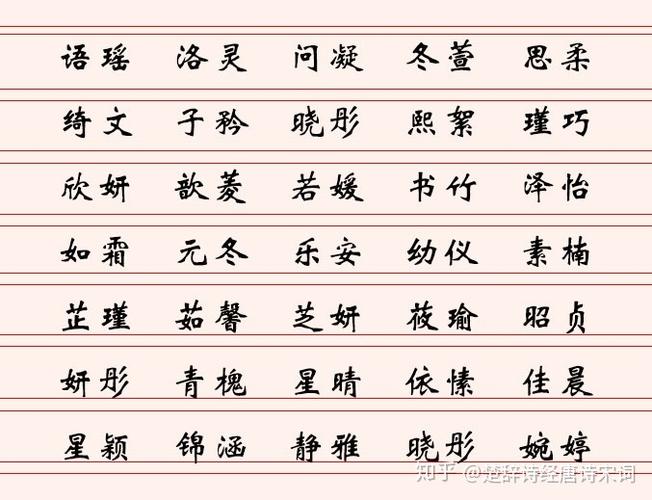 语瑶 洛灵 问凝 冬萱 思柔
绮文 子矜 晓彤 熙絮 瑾巧
欣妍 歆菱 若媛 书竹 泽怡
如霜 元冬 乐安 幼仪 素楠
芷瑾 茹馨 芝妍 莜瑜 昭贞
妍彤 青槐 星晴 依愫 佳晨
星颖 锦涵 静雅 晓彤 婉婷
知乎 @楚辞诗经唐诗宋词